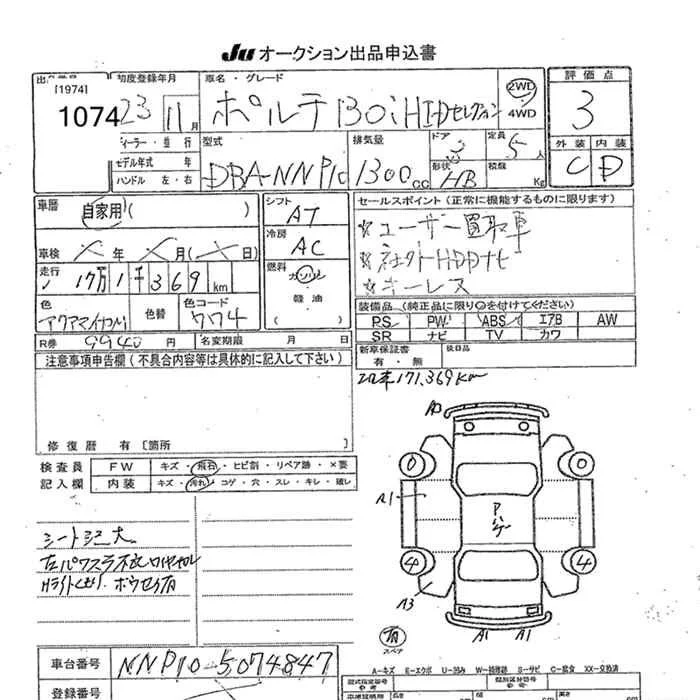 Ju オークション出品申込書
[1974]
1074
初度登録年月
23 11月
車名・グレード
ポルテ 130i HIDセレクション
2WD
4WD
評価点
3
ディーラー・並行
モデル年式 年
ハンドル 左・右
型式
DBA-NNP10
排気量
1300cc
ドア
3
形状
HB
定員
5人
積載
Kg
外装 内装
C D
車歴
自家用( )
車検 × 年 × 月( × 日)
走行
17万1千369km
色
色替
色コード
774
シフト
AT
冷房
AC
燃料
ガソリン
軽油
( )
セールスポイント(正常に機能するものに限ります)
☆ユーザー買取車
☆社外HDDナビ
☆キーレス
装備品(純正品に限り○を付けてください)
PS PW ABS エアB AW
SR ナビ TV カワ
R券 9940円
名変期限 月 日
新車保証書
有・無
後日品
171,369km
注意事項申告欄(不具合内容等は具体的に記入して下さい)
修復歴 有〔箇所
検査員
記入欄
FW キズ・飛石・ヒビ割・リペア跡・×要
内装 キズ・汚れ・コゲ・穴・スレ・キレ・破レ
シートシミ大
A1
A3
0 0
4 4
A1 A1
有
スペア
車台番号
NNP10-5074847
登録番号
A-キズ E-エクボ U-凹み W-補修跡 S-サビ C-腐食 XX-交換済
型式指定番号
類別区分番号